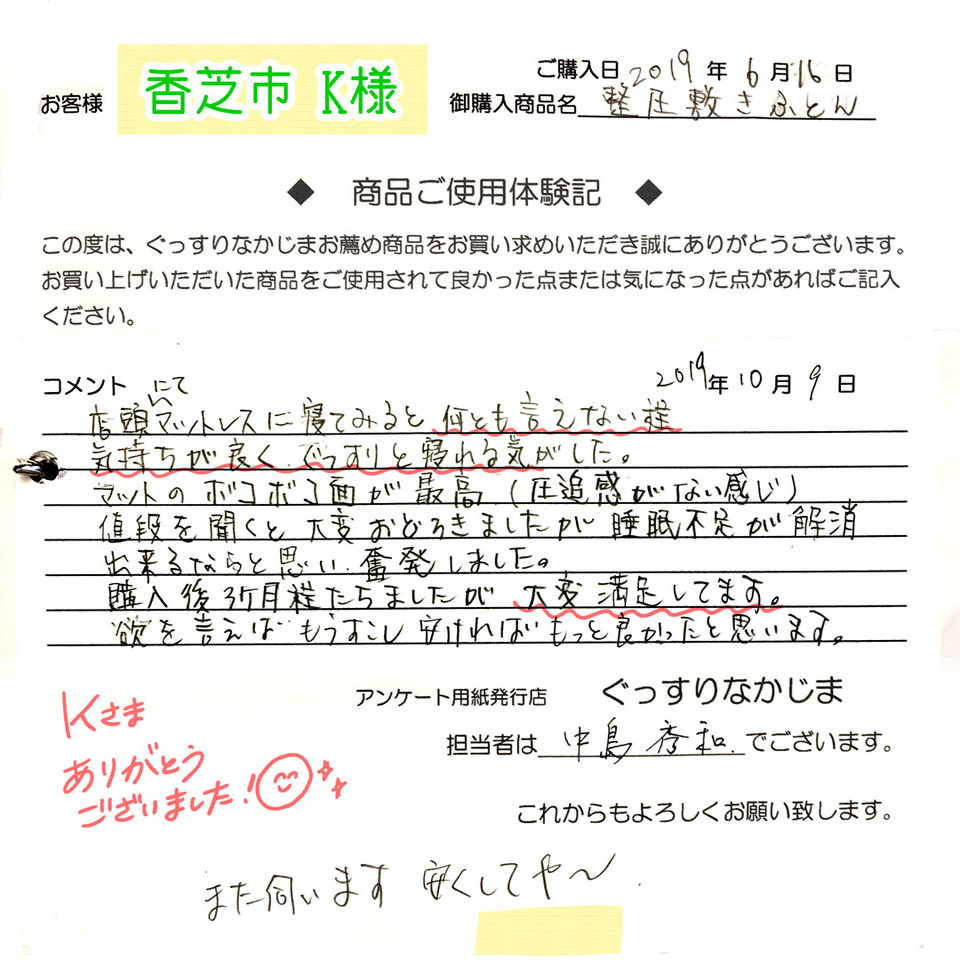 ご購入日 2019年6月16日
お客様 香芝市 K様 御購入商品名 整圧敷きふとん
◆ 商品ご使用体験記 ◆
この度は、ぐっすりなかじまお薦め商品をお買い求めいただき誠にありがとうございます。
お買い上げいただいた商品をご使用されて良かった点または気になった点があればご記入
ください。
コメント 2019年10月9日
店頭にてマットレスに寝てみると何とも言えない程
気持ちが良く、ぐっすりと寝れる気がした。
マットのボコボコ面が最高(圧迫感がない感じ)
値段を聞くと大変おどろきましたが睡眠不足が解消
出来るならと思い、奮発しました。
購入後3ヶ月程たちましたが大変満足してます。
欲を言えばもうすこし安ければもっと良かったと思います。
アンケート用紙発行店 ぐっすりなかじま
担当者は 中島秀和 でございます。
Kさま
ありがとう
ございました!
これからもよろしくお願い致します。
また伺います 安くしてや〜